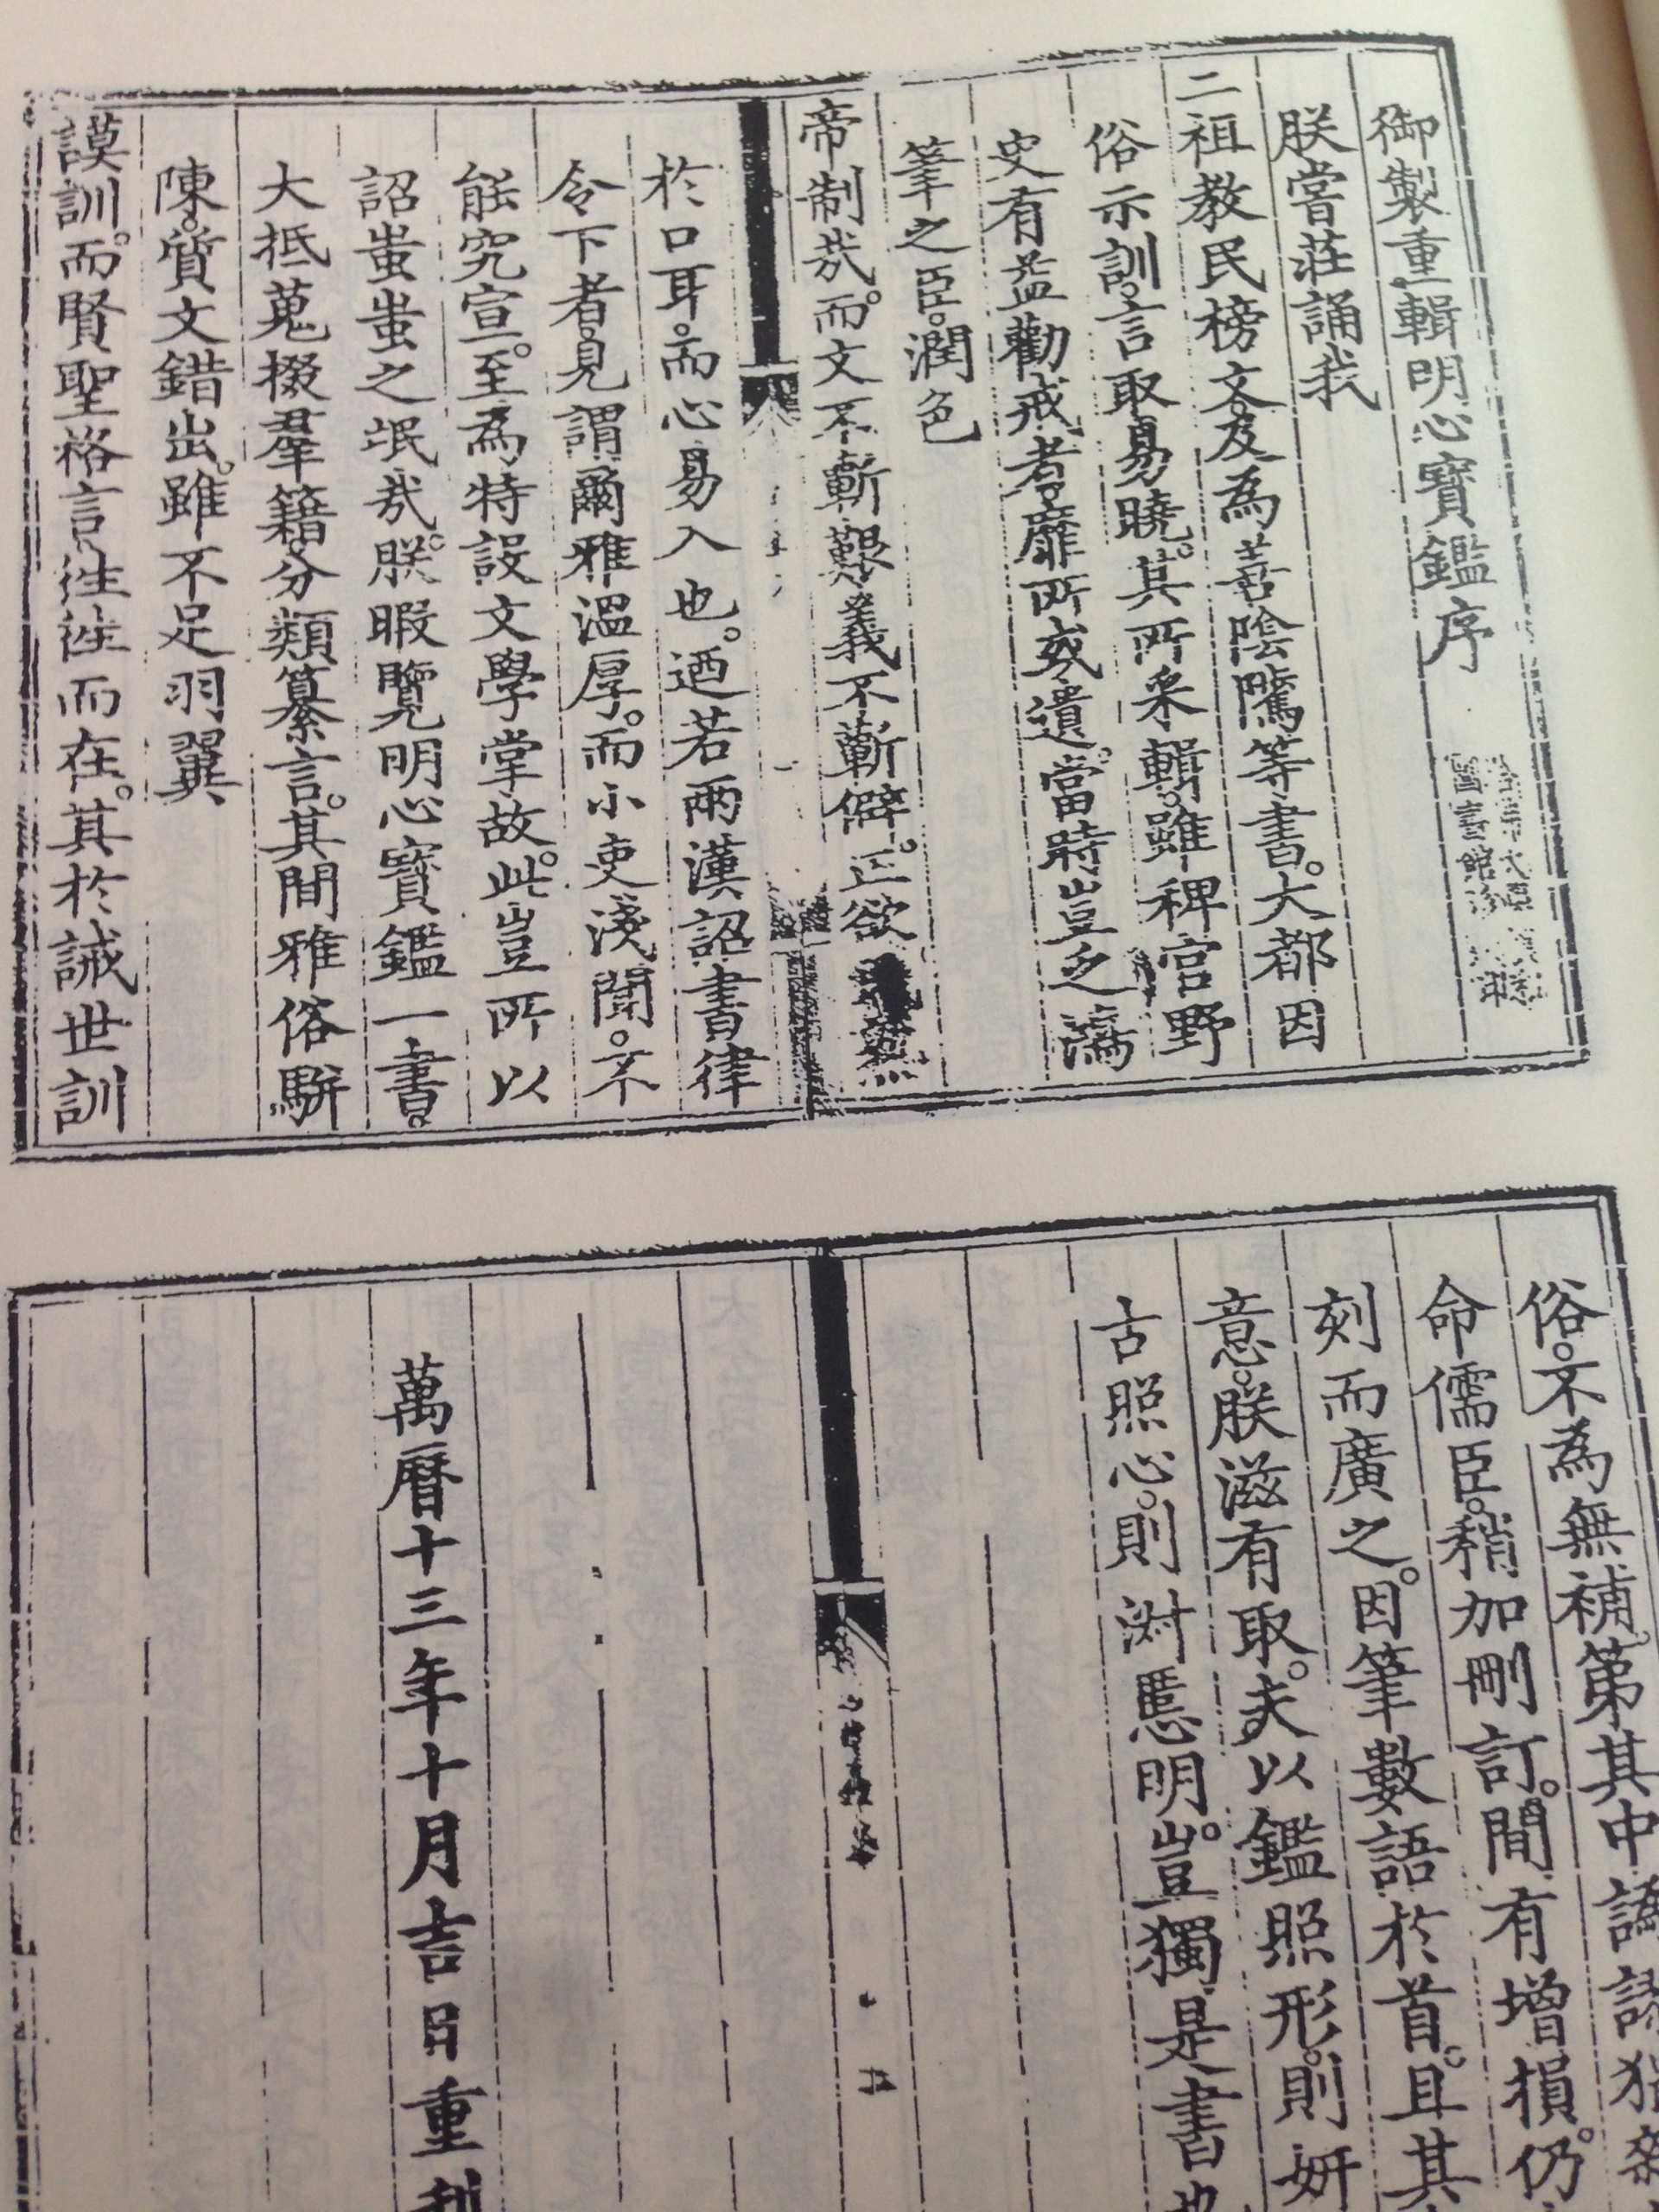 御製重輯明心寶鑑序
朕嘗莊誦我
二祖教民榜文及為善陰騭等書。大都因
俗示訓。言取易曉。其所采輯。雖稗官野
史有益勸戒者。靡所或遺。當時豈乏
筆之臣。潤色
帝制哉。而文不蘄艱義不蘄僻。正欲
於口耳。而心易入也。迺若兩漢詔書律
令下者。見謂爾雅溫厚。而小吏淺聞。不
能究宣。至為特設文學掌故。此豈所以
詔蚩蚩之氓哉。朕暇覽明心寶鑑一書。
大抵蒐掇羣籍分類纂言。其間雅俗駢
陳。質文錯出。雖不足羽翼
謨訓。而賢聖格言往往而在。其於誡世訓
俗。不為無補。第其中
命儒臣。稍加刪訂。間有增損。仍
刻而廣之。因筆數語於首。且其
意。朕滋有取。夫以鑑照形。則妍
古照心。則淑慝明。豈獨是書也
萬曆十三年十月吉日重